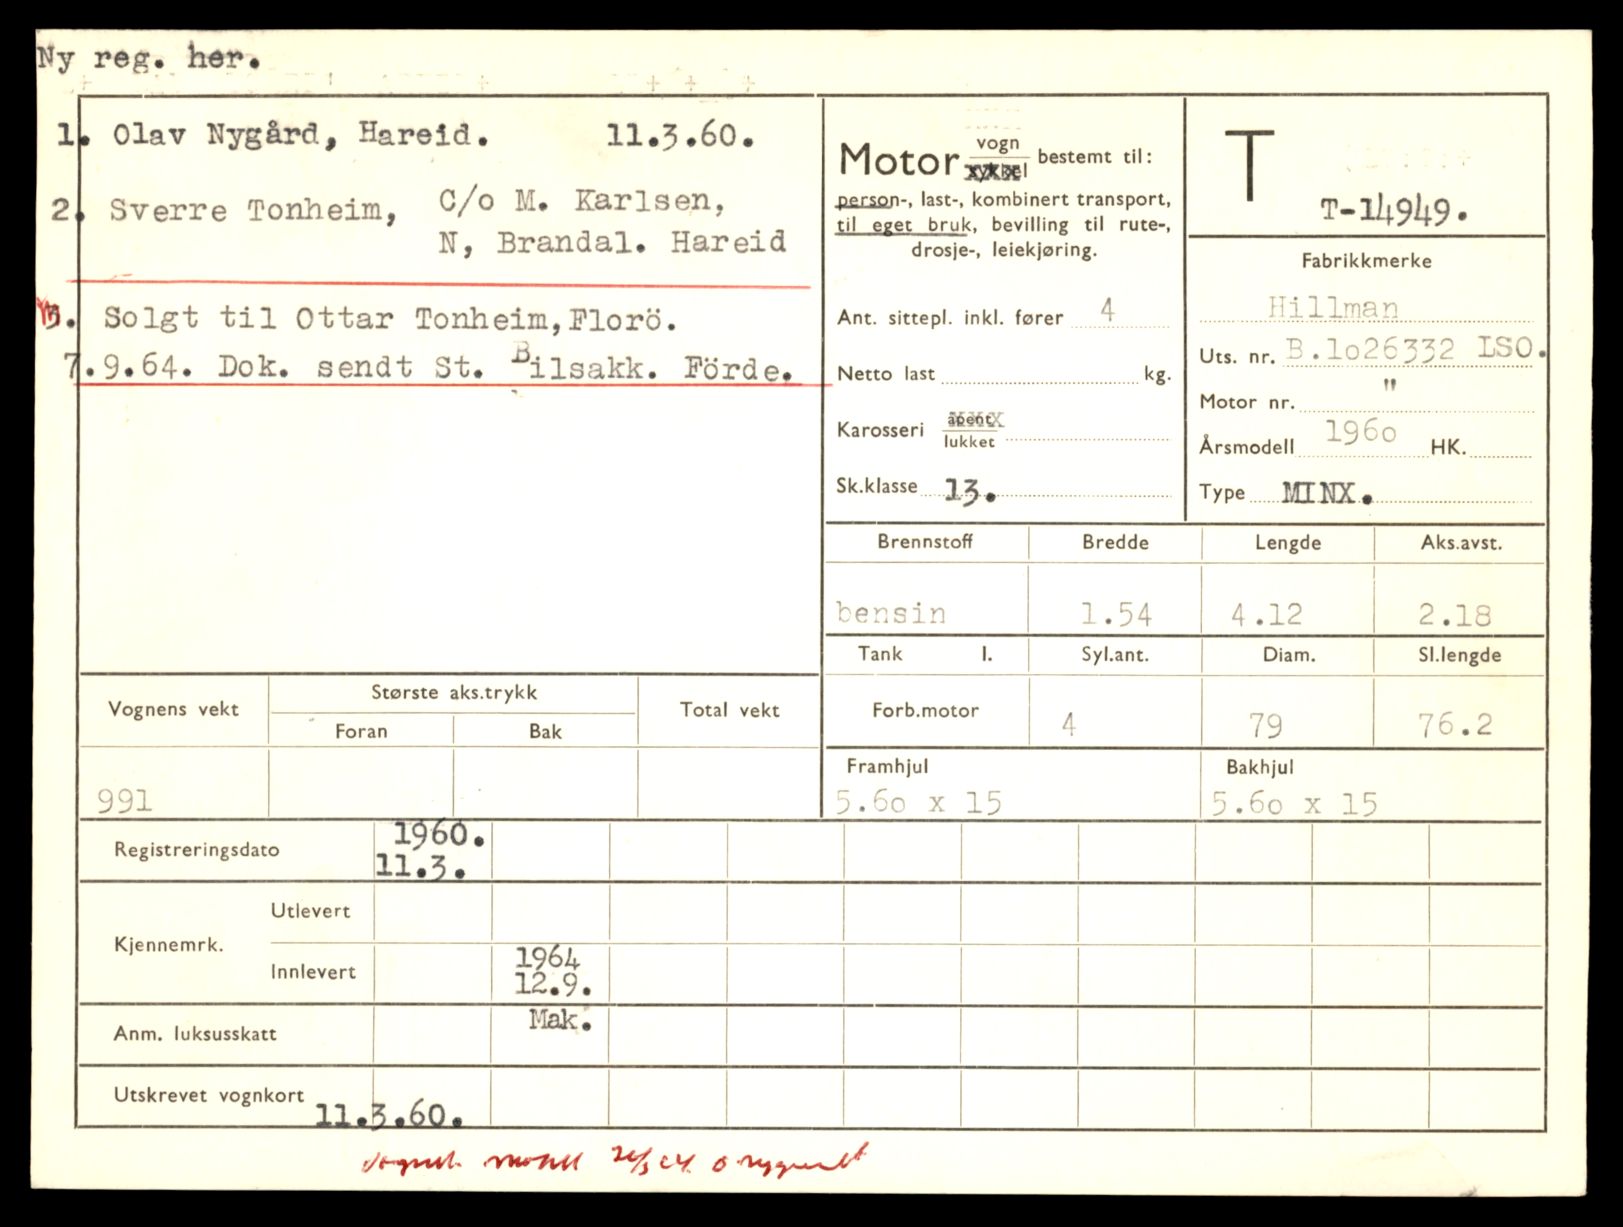 Ny reg. her.
1. Olav Nygård, Hareid. 11.3.60.
2. Sverre Tonheim, C/o M. Karlsen,
N, Brandal. Hareid
3. Solgt til Ottar Tonheim, Florö.
7.9.64. Dok. sendt St. Bilsakk. Förde.
Motor vogn
sykkel bestemt til:
person-, last-, kombinert transport,
til eget bruk, bevilling til rute-,
drosje-, leiekjøring.
Ant. sittepl. inkl. fører 4
Netto last kg.
Karosseri åpent
lukket
Sk.klasse 13.
T
T-14949.
Fabrikkmerke
Hillman
Uts. nr. B.1o26332 LSO.
Motor nr. "
Årsmodell 196o HK.
Type MINX.
Brennstoff Bredde Lengde Aks.avst.
bensin 1.54 4.12 2.18
Tank l. Syl.ant. Diam. Sl.lengde
Forb.motor 4 79 76.2
Framhjul Bakhjul
5.6o x 15 5.6o x 15
Vognens vekt Største aks.trykk Total vekt
Foran Bak
991
Registreringsdato 1960.
11.3.
Kjennemrk. Utlevert
Innlevert 1964
12.9.
Anm. luksusskatt Mak.
Utskrevet vognkort 11.3.60.